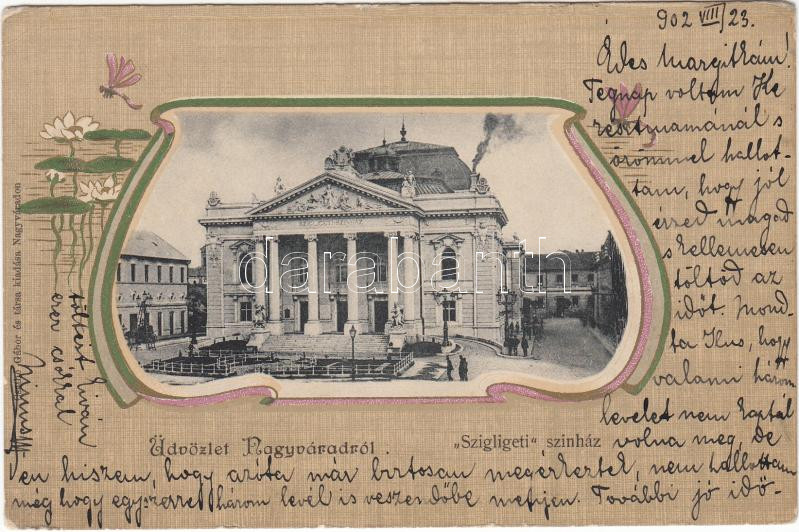 902 VIII/23.
Édes Margitkám!
Tegnap voltam Ke
resztmamánál s
örömmel hallot-
tam, hogy jól
érzed magad
s kellemesen
töltöd az
időt. Mond-
ta Ilus, hogy
valami három
levelet nem kaptál
volna meg, de
én hiszem, hogy azóta már biztosan megérkeztek, nem hallottam
még hogy egyszerre három levél is veszendőbe menjen. További jó idő-
töltést kíván
ezer csókkal
Üdvözlet Nagyváradról.
„Szigligeti“ szinház
Gábor és társa kiadása Nagyváradon
SZIGLIGETI SZINHÁZ
darabanth